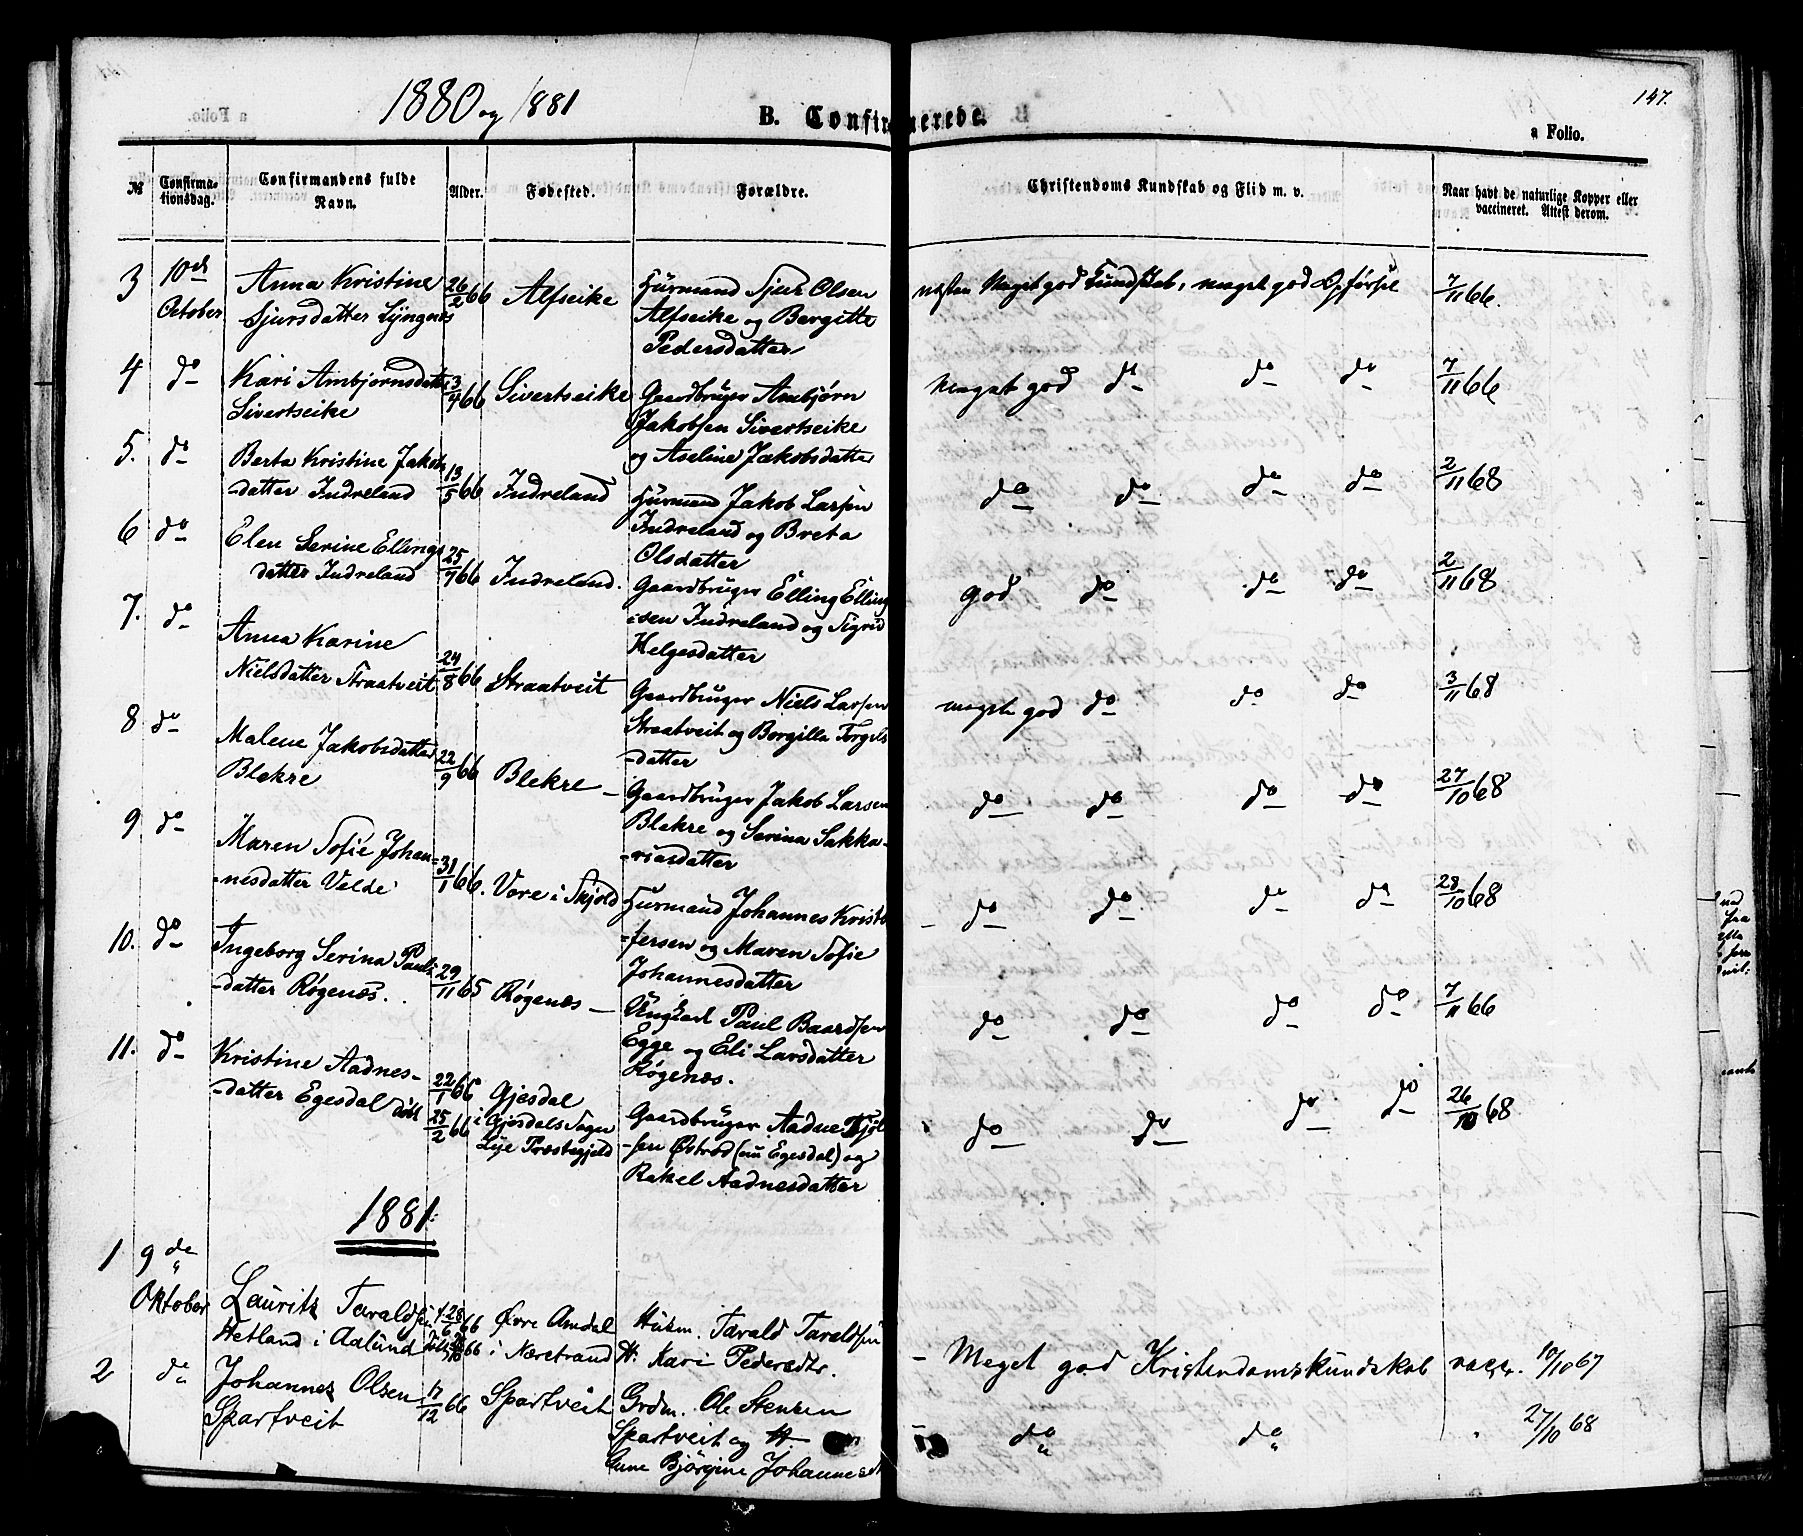 1880 og 1881
B. Confirmerede.
147.
a Folio.
№
Confirma-
tionsdag.
Confirmandens fulde
Navn.
Alder.
Fødested.
Forældre.
Christendoms Kundskab og Flid m. v.
Naar havt de naturlige Kopper eller
vaccineret. Attest derom.
3 10de October
Anna Kristine
Sjursdatter Lyngnes
26/2 66
Alfseike
Huusmand Sjur Olsen
Alfseike og Bergitte
Pedersdatter
næsten Meget god Kundskab, meget god Opførsel
7/11 66.
4 do
Kari Ambjørnsdatter
Sivertseike
13/4 66
Sivertseike
Gaardbruger Ambjørn
Jakobsen Sivertseike
og Aseline Jakobsdatter
Meget god do do do
7/11 66
5. do
Berta Kristine Jakobs
-datter Indreland
13/5 66
Indreland
Huusmand Jakob Larsen
Indreland og Breta
Olsdatter
do do do do
2/11 68
6 do
Elen Serine Ellings
datter Indreland
25/7 66
Indreland.
Gaardbruger Elling Elling
-sen Indreland og Sigrid
Helgesdatter
god do do do
2/11 68
7. do
Anna Karine
Nielsdatter Straatveit
24/8 66
Straatveit
Gaardbruger Niels Larsen
Straatveit og Borgilla Torgils
-datter
meget god do do do
3/11 68
8 do
Malene Jakobsdatter
Blekre
22/9 66
Blekre
Gaardbruger Jakob Larsen
Blekre og Serina Sakka-
-riasdatter
do do do do
27/10 68
9 do
Maren Sofie Johan-
-nesdatter Velde
31/1 66.
Vore i Skjold
Huusmand Johannes Kristo
-fersen og Maren Sofie
Johannesdatter
do do do do
28/10 68
10. do
Ingeborg Serina Pauls
-datter Røgenæs.
29/11 65
Røgenæs
Ungkarl Paul Baardsen
Egge og Eli Larsdatter
Røgenæs.
do do do do
7/11 66
11. do
Kristine Aadnes-
-datter Egesdal døbt
22/1 66
25/2 66
Gjesdal
i Gjesdals Sogn
Lye Præstegjeld
Gaardbruger Aadne Tjøl
-sen Østrød (nu Egesdal) og
Rakel Aadnesdatter
do do do do
26/10 68
1881.
1 9de Oktober
Lauritz Taraldsen
Hetland i Aalund
28/6 66
66
Øvre Amdal
i Nærstrand
Husm. Tarald Taraldsen
H. Kari Pedersdtr.
Meget god Kristendomskundskab
vacc. 10/10 67
2 do
Johannes Olsen
Spartveit
17/12 66
Spartveit
Grdm. Ole Stensen
Spartveit og H.
Gune Bjørgine Johannesdt
do do
27/10 68